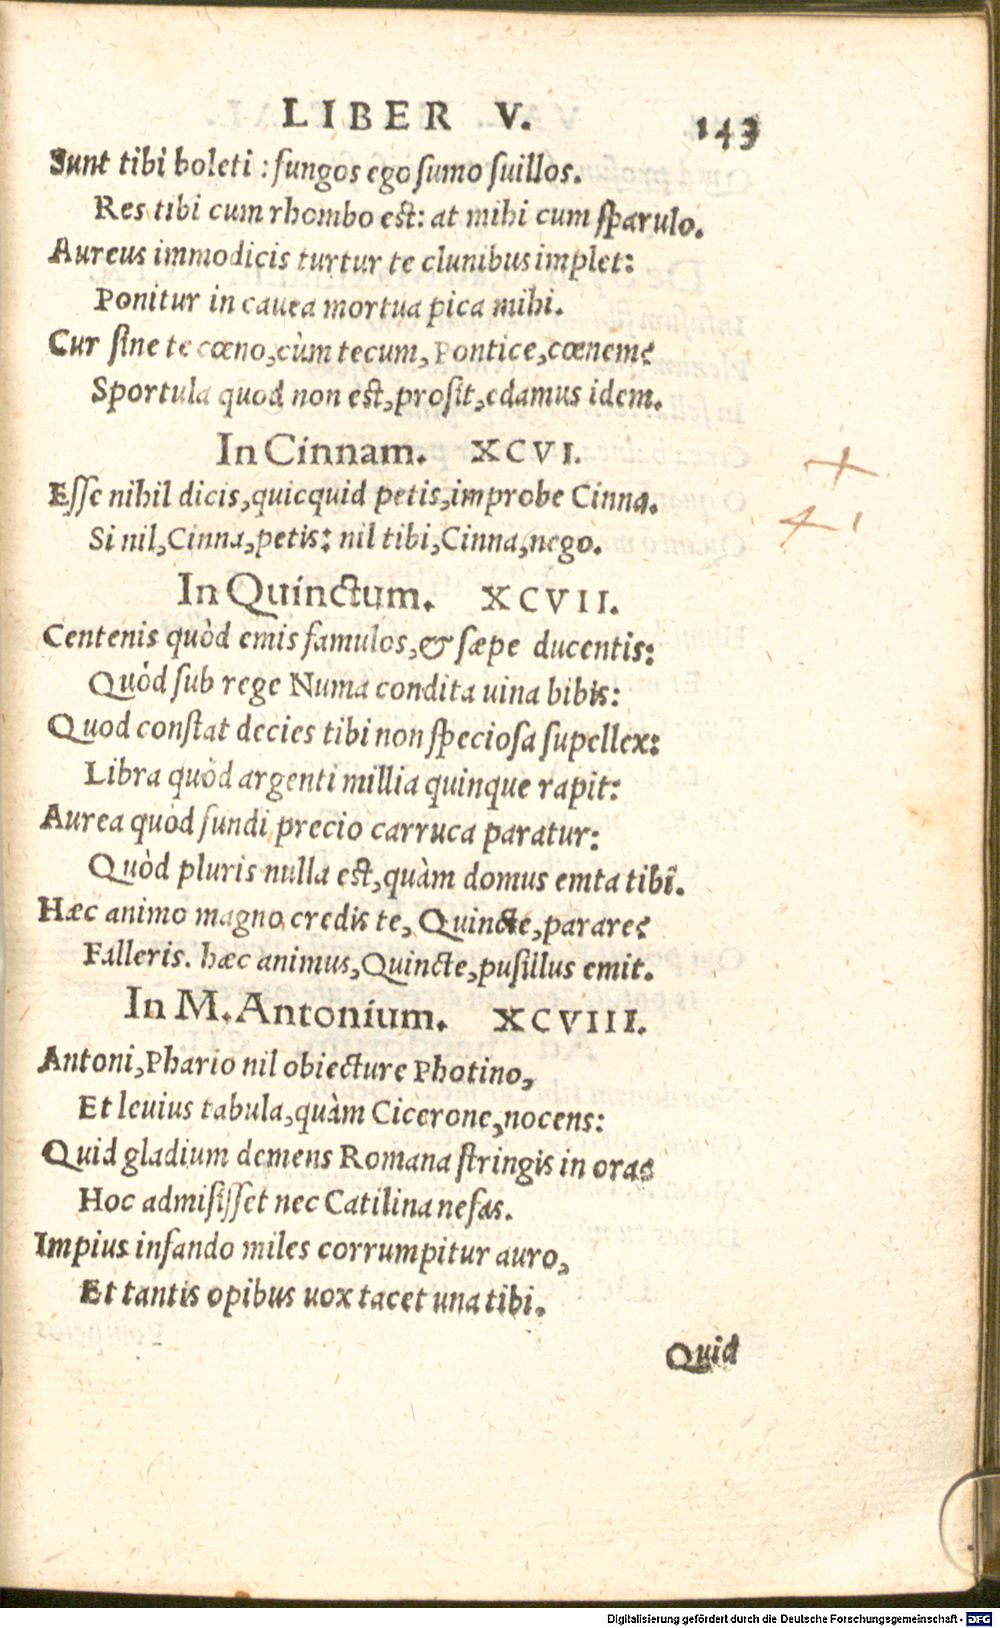 LIBER V. 143
Sunt tibi boleti: fungos ego sumo suillos.
Res tibi cum rhombo est: at mihi cum sparulo.
Aureus immodicis turtur te clunibus implet:
Ponitur in cauea mortua pica mihi.
Cur sine te cœno, cùm tecum, Pontice, cœnem?
Sportula quod non est, prosit, edamus idem.
In Cinnam. XCVI.
Esse nihil dicis, quicquid petis, improbe Cinna.
Si nil, Cinna, petis: nil tibi, Cinna, nego.
In Quinctum. XCVII.
Centenis quòd emis famulos, & sæpe ducentis:
Quòd sub rege Numa condita uina bibis:
Quod constat decies tibi non speciosa supellex:
Libra quòd argenti millia quinque rapit:
Aurea quòd fundi precio carruca paratur:
Quòd pluris nulla est, quàm domus emta tibi.
Hæc animo magno credis te, Quincte, parare?
Falleris. hæc animus, Quincte, pusillus emit.
In M. Antonium. XCVIII.
Antoni, Phario nil obiecture Photino,
Et leuius tabula, quàm Cicerone, nocens:
Quid gladium demens Romana stringis in ora?
Hoc admisisset nec Catilina nefas.
Impius infando miles corrumpitur auro,
Et tantis opibus uox tacet una tibi.
Quid
Digitalisierung gefördert durch die Deutsche Forschungsgemeinschaft - DFG